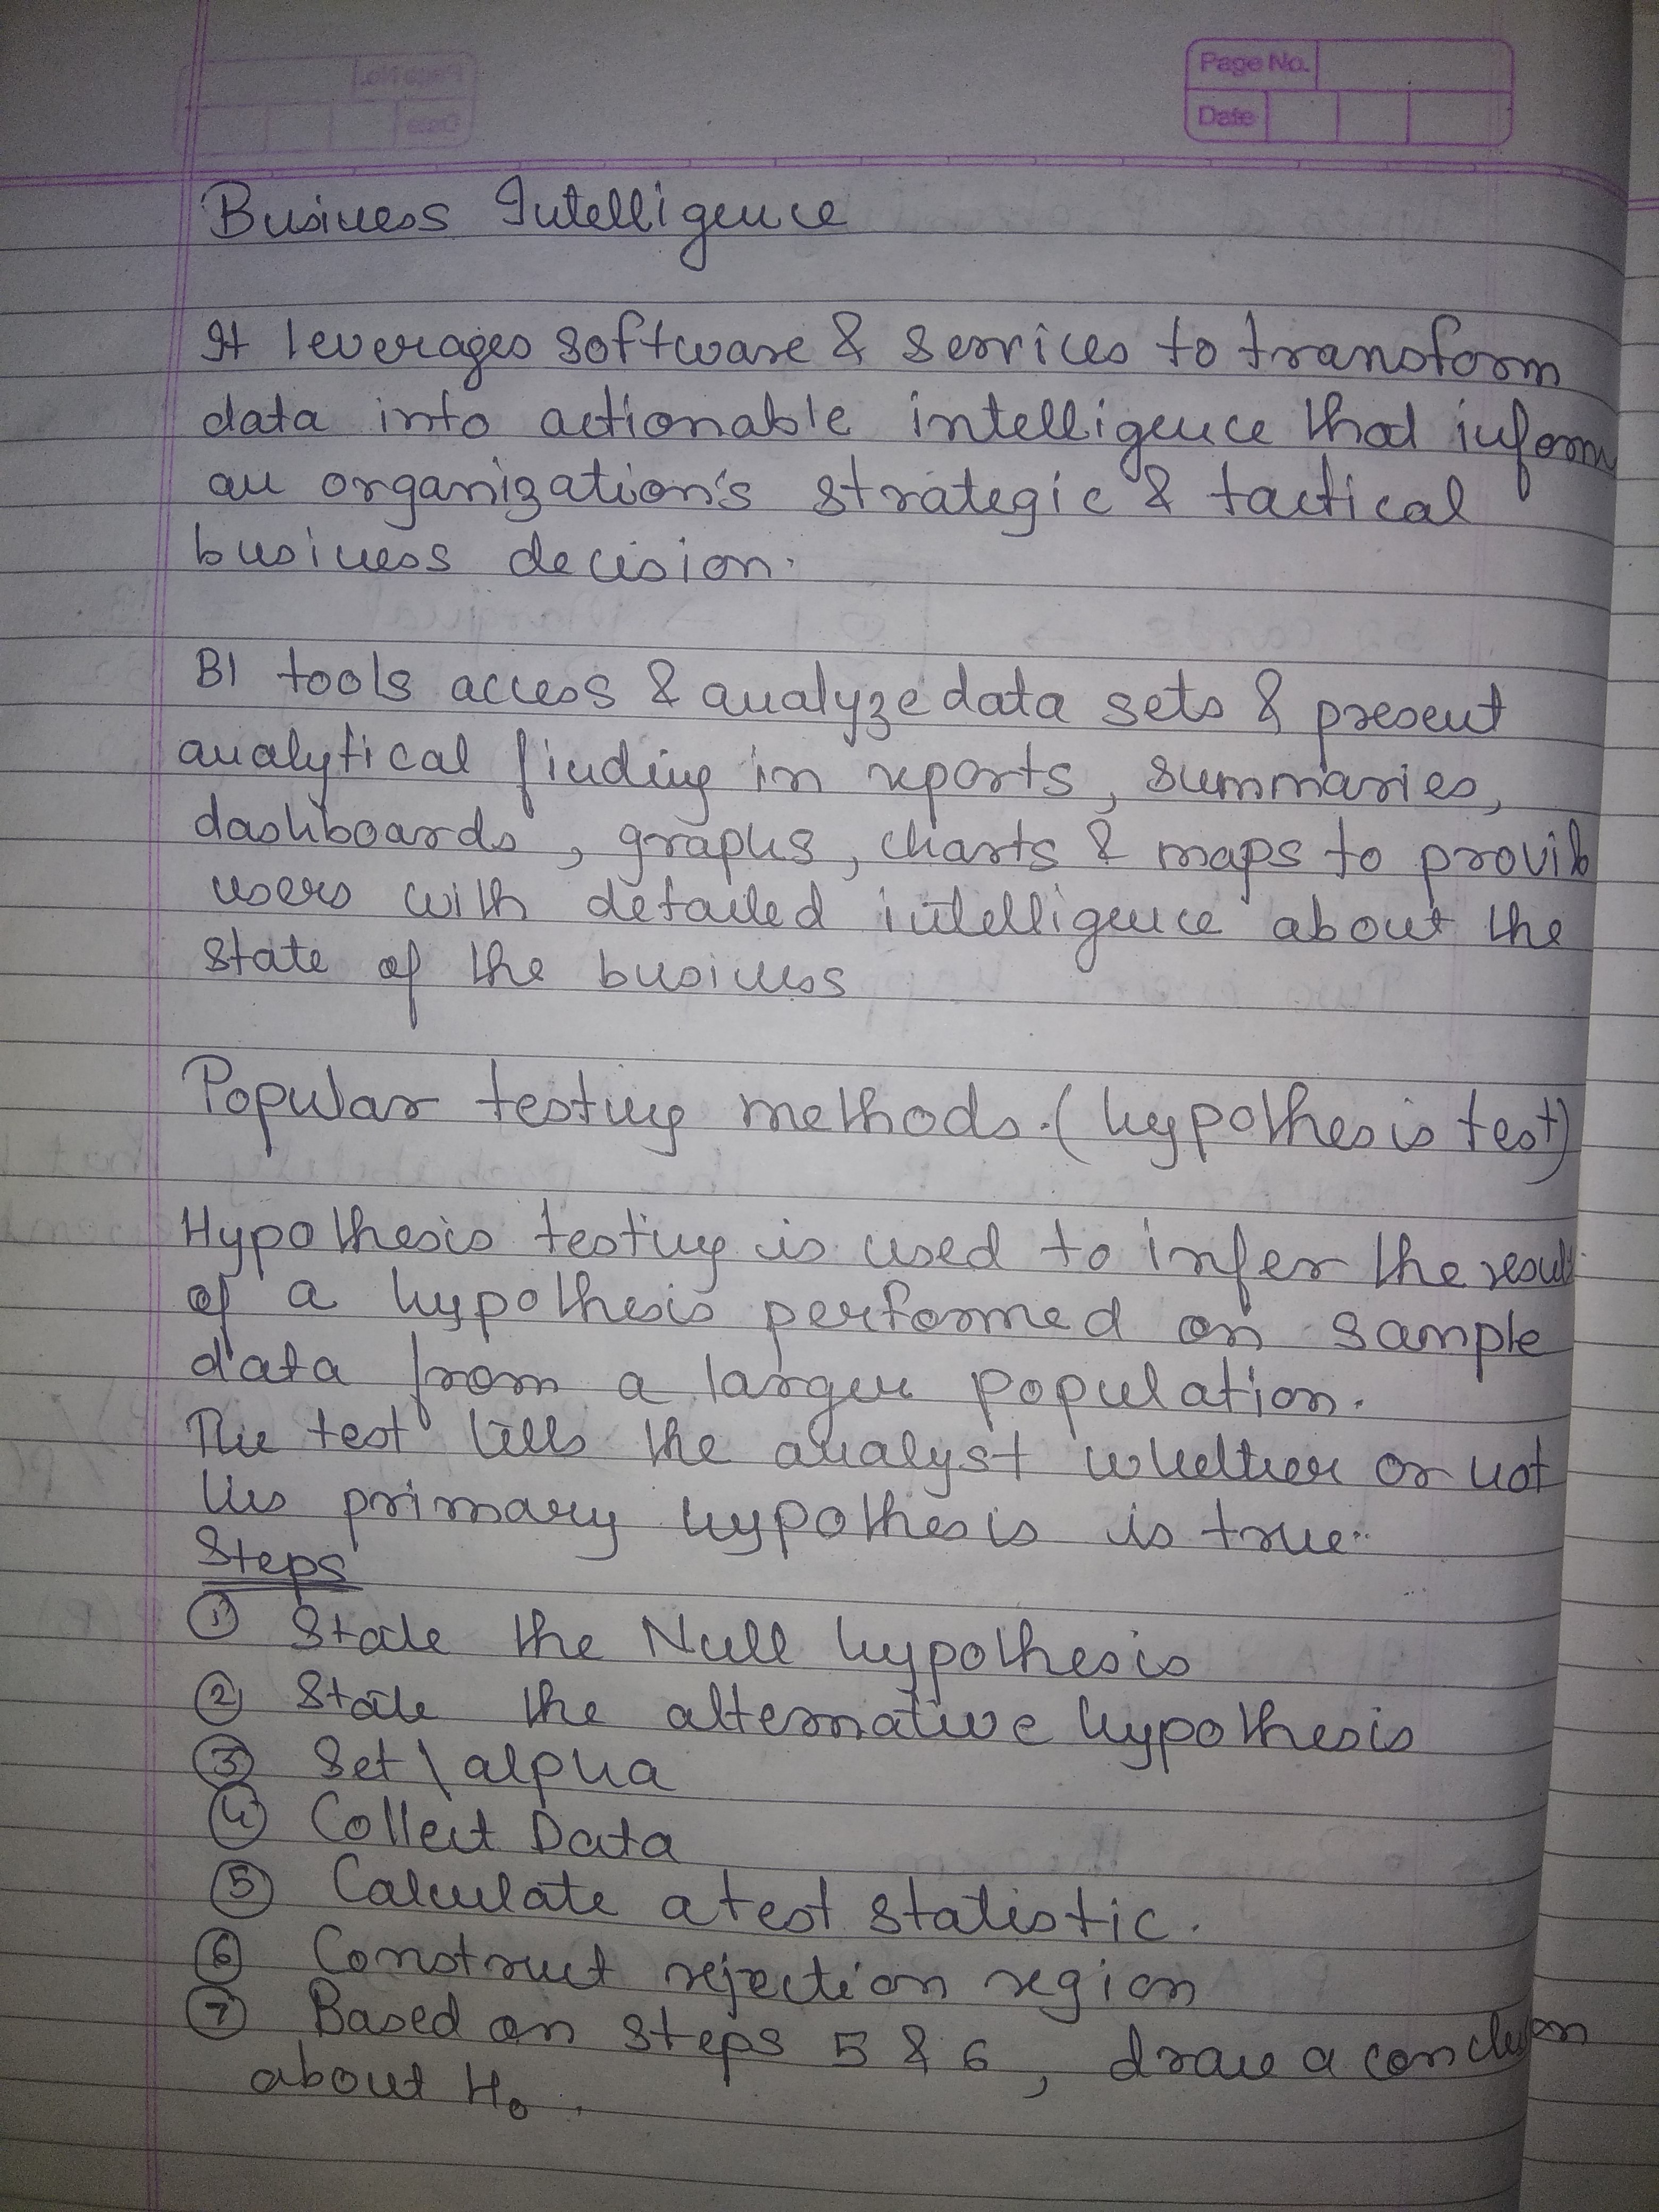 Page No.
Date
Business Intelligence
It leverages software & services to transform
data into actionable intelligence that inform
an organization's strategic & tactical
business decision.
BI tools access & analyze data sets & present
analytical finding in reports, summaries,
dashboards, graphs, charts & maps to provide
users with detailed intelligence about the
state of the business
Popular testing methods. (hypothesis test)
Hypothesis testing is used to infer the result
of a hypothesis performed on sample
data from a larger population.
The test tells the analyst whether or not
his primary hypothesis is true.
Steps
① State the Null hypothesis
② State the alternative hypothesis
③ Set \ alpha
④ Collect Data
⑤ Calculate a test statistic.
⑥ Construct rejection region
⑦ Based on steps 5 & 6, draw a conclusion
about H₀.